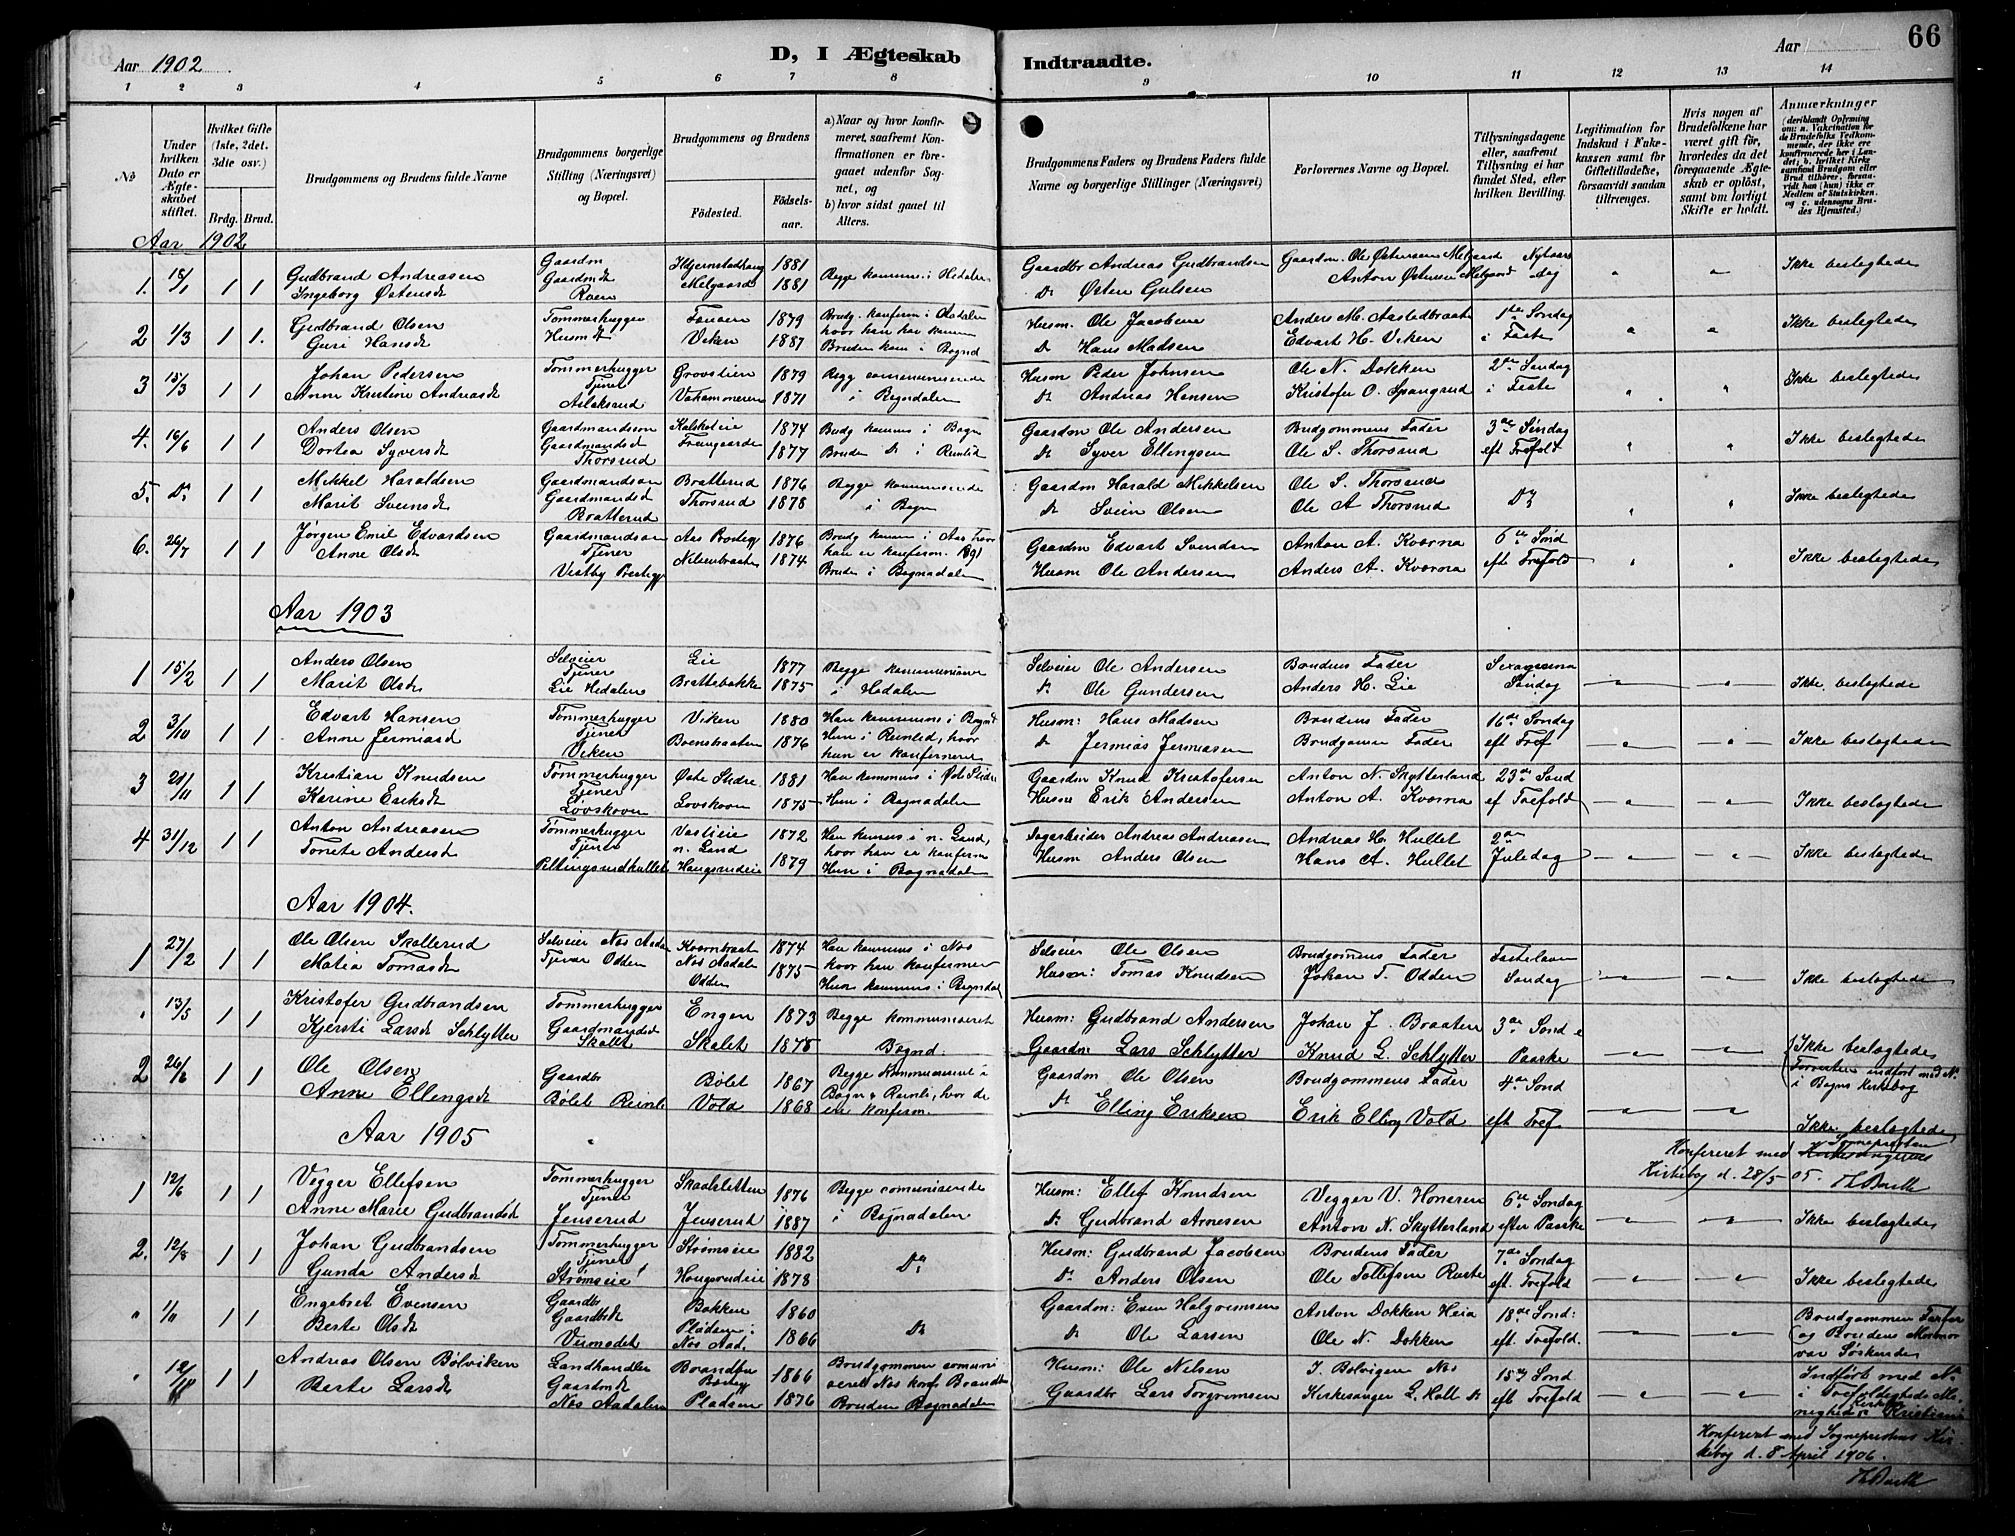 66
Aar 1902
D, I Ægteskab
Indtraadte.
Aar
1 2 3 4 5 6 7 8 9 10 11 12 13 14
No
Under hvilken Dato er Ægteskabet stiftet.
Hvilket Gifte (1ste, 2det, 3die osv.)
Brdg. Brud.
Brudgommens og Brudens fulde Navne
Brudgommens borgerlige Stilling (Næringsvei) og Bopæl.
Brudgommens og Brudens
Fødested. Fødselsaar.
a) Naar og hvor konfirmeret, saafremt Konfirmationen er foregaaet udenfor Sognet, og
b) hvor sidst gaaet til Alters.
Brudgommens Faders og Brudens Faders fulde Navne og borgerlige Stillinger (Næringsvei)
Forlovernes Navne og Bopæl.
Tillysningsdagene eller, saafremt Tillysning ei har fundet Sted, efter hvilken Bevilling.
Legitimation for Indskud i Enkekassen samt for Giftetilladelse, forsaavidt saadan tiltrænges.
Hvis nogen af Brudefolkene har været gift før, hvorledes da det foregaaende Ægteskab er opløst, samt om lovligt Skifte er holdt.
Anmærkninger
Aar 1902
1. 18/1 1 1 Gudbrand Andreasen Gaardm 1881 Begge kommun. i Hedalen Gaardbr Andreas Gudbrandsen Gaardm. Ole Østensen Melgaard Nytaars Ikke beslegtede
Ingeborg Østensdt Gaardmdt Melgaard 1881 Dr Østen Gulsen Anton Østensen Melgaard dag
Roen
2 1/3 1 1. Gudbrand Olsen Tommerhugger 1879 Brudg. konferm. i Hedalen Husm. Ole Jacobsen Anders M. Aastedbraaten 1ste Søndag Ikke beslegtede
Guri Hansdt Husmdt Viken 1887 hvor han har kommun Dr Hans Madsen Edvart H. Viken i Faste
Bruden kom i Bagnd
3 15/3 1 1 Johan Pedersen Tommerhugger Grovstien 1879 Begg communiserede Husm Peder Johnsen Ole N. Dokken 2den Søndag Ikke beslegtede
Anne Kristine Andreasdt Tjener Vahammeren 1871 i Bagndalen Dr Andreas Hansen Kristofer O. Spangrud i Faste
Aslaksrud
4. 16/6 1 1 Anders Olsen Gaardmandssøn Kalskoleie 1874 Budg kommu i Bagn Gaardm Ole Andersen Brudgommens Fader 3die Søndag Ikke beslegtede
Dortea Syversdt Gaardmandsdt 1877 Bruden Dr i Reinlid Dr Syver Ellengsen Ole S. Thorsrud eft Trefold
Thorsrud
5. Dr 1 1 Mikkel Haraldsen Gaardmandssøn Bratterud 1876 Begge kommuniserede Gaardm Harald Mikkelsen Ole S. Thorsrud Dr Ikke beslegtede
Marit Sveinsdt Gaardmandsdt Thorsrud 1878 i Bagn Dr Svein Olsen Ole A Thorsrud
Bratterud
6. 26/7 1 1 Jørgen Emil Edvardsen Gaardmandssøn Aas Prestegj 1876 Brudg kommu i Aas hvor Gaardm Edvart Svendsen Anton A. Kværna 6te Sønd Ikke beslegtede
Anne Olsdt Tjener Nilsenbraaten 1874 han er konferm. Husm Ole Andersen Anders A. Kværna eft Trefold
Vestby Prestegj Bruden i Bagnadalen
Aar 1903
1 15/2 1 1 Anders Olsen Selveier Lie 1877 Begge kommunicerer Selveier Ole Andersen Brudens Fader Sexagesima Ikke beslegtede
Marit Olsdt Tjener Brattebakke 1875 i Hedalen Dr Ole Gundersen Anders H. Lie Søndag
Lie Hedalen
2 3/10 1 1 Edvart Hansen Tømmerhugger Viken 1880 Han kommuns i Bagnd Husm: Hans Madsen Brudens Fader 16de Søndag Ikke beslegtede
Anne Jermiasdt Tjener Boenbraaten 1876 Hun i Reinlid, hvor Dr Jermias Jermiasen Brudgomm Fader eft Tref
Viken hun er konfermeret
3 21/11 1 1 Kristian Knudsen Tømmerhugger Øste Slidre 1881 Han kommuns i Øst Slidre Gaardm Knud Kristofersen Anton N. Skytterland 23de Sønd Ikke beslegtede
Karine Eriksdt Tjener Lovskoven 1875 Hun i Bagnadalen Husm Erik Andersen Anton A. Kværna ef Trefold
Løvskoven
4 31/12 1 1 Anton Andreasen Tømmerhugger Vestieie 1872 Han kommns i n. Land, Dagarbeider Andreas Andreasen Andreas H. Hullet 2den Ikke beslegtede
Tonete Andersdt Tjener n. Land hvor han er konferm Husm Anders Olsen Hans A. Hullet Juledag
Haugsrudeie 1879 Hun i Bagnadalen
Aar 1904.
1 27/2 1 1 Ole Olsen Skollerud Selveier Nøs Aadal Kvernbraat 1874 Han kommuns i Nøs Selveier Ole Olsen Brudgomens Fader Fastelavn Ikke beslegtede
Matea Tomasdt Tjener Odden Nøs Aadalen 1875 hvor han konfermer Husm: Tomas Knudsen Johan T. Odden Søndag
Odden Hun kommuns i Bagndal
" 13/5 1 1 Kristofer Gudbrandsen Tommerhugger Engen 1873 Begge kommuniseret Husm: Gudbrand Andersen Johan J. Braaten 3die Sønd e
Kjersti Larsdt Schlytter Gaardmandsdt Skalet 1875 Bagnd. Gaardm: Lars Schlytter Knud L. Schlytter Paaske Ikke beslegtede
Skallt Forvextlen indført med No i Bagns kirkebog
2 26/6 1 1 Ole Olsen Gaardbr Bølet 1867 Begge Kommuniseret i Gaardm Ole Olsen Brudgommens Fader 4de Sønd
Anne Ellengsdt Bølet Reinli Vold 1868 Bagn & Reinli, hvor de er konferm. Dr Elling Eriksen Erik Elling Vold eft Tref Ikke beslegtede
Aar 1905
Konfereret med Sogneprestens Kirkebog d. 28/5 05.
1 12/6 1 1 Vegger Ellefsen Tommerhugger Skaalsletten 1876 Begge comuniserede Husm: Ellef Knudsen Vegger V. Honeren 6te Søndag Ikke beslegtede
Anne Marie Gudbrandsdt Tjener Jenserud 1887 i Bagnadalen Dr Gudbrand Arnesen Anton N. Skytterland efter Paaske
Jenserud
2. 12/8 1 1 Johan Gudbrandsen Tommerhugger Strømseie 1882 Dr Husm: Gudbrand Jacobsen Brudens Fader 7de Søndag Ikke beslegtede
Gunda Andersdt Tjener Haugsrudeie 1878 Dr Anders Olsen Ole Tollefsen Ruste eft. Trefold
Strømseie
" 1/11 1 1 Engebret Evensen Gaardbr Bakken 1860 Dr Gaardm: Even Halgrimsen Anton Dokken Heia 18de Sønd: Brudgommens Farfar
Berte Olsdt Gaardbrdt Pladsen i 1866 Dr Ole Larsen Ole N. Dokken eft. Trefold. og Brudens Mormor
Nøs Aad. var Søskende
" 12/10 1 1 Andreas Olsen Bølviken Landhandler Brandbu 1866 Brudgommen comuniseret Nøs konf. Brandbu Husm: Ole Nilsen J. Bølvigen Nøs 15de Sønd Indført med No
Berte Larsdt Gaardmdt Pladsen 1876 Bruden Bagnadalen Gaardbr Lars Torgrimsen Kirkesanger L. Hall Dr eft Trefold i Trefoldigheds Menigheds Kirkebog Kristiania
Nøs Aadalen
Konfereret med Sogneprestens Kirkebog d. 8 April 1906.